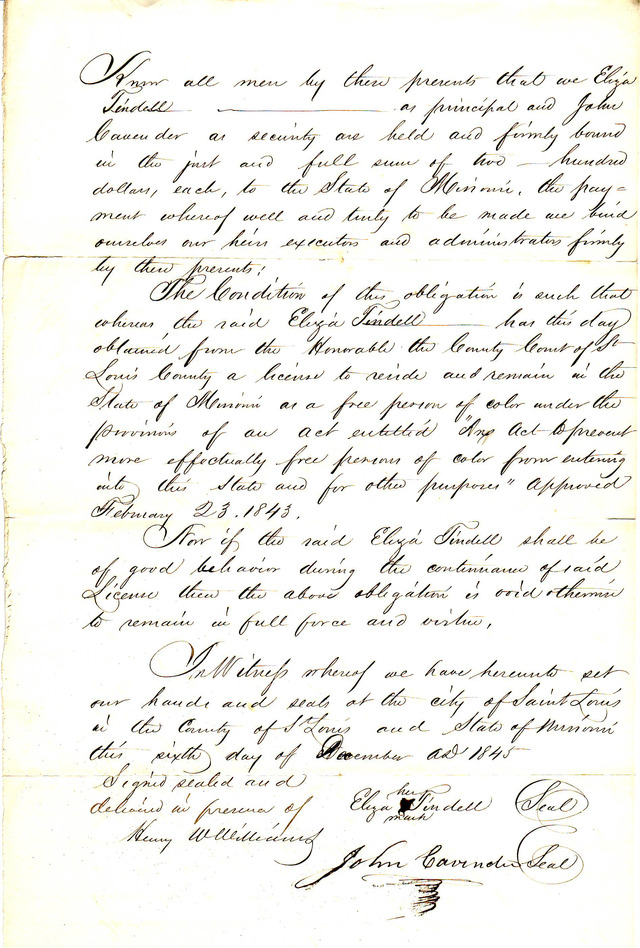 Know all men by these presents that we Eliza
Tindell as principal and John
Cavender as security are held and firmly bound
in the just and full sum of two — hundred
dollars, each, to the State of Missouri, the pay=
ment whereof well and truly to be made we bind
ourselves our heirs executors and administrators firmly
by these presents:
The Condition of this obligation is such that
whereas the said Eliza Tindell has this day
obtained from the Honorable the County Court of St
Louis County a license to reside and remain in the
State of Missouri as a free person of color under the
provisions of an act entitled "An Act to prevent
more effectually free persons of color from entering
into this State and for other purposes" approved
February 23. 1843.
Now if the said Eliza Tindell shall be
of good behavior during the continuance of said
License then the above obligation is void otherwise
to remain in full force and virtue.
In Witness whereof we have hereunto set
our hands and seals at the city of Saint Louis
in the County of St Louis and State of Missouri
this sixth day of December AD 1845
Signed sealed and
delivered in presence of
Henry W Williams
her
Eliza Tindell Seal
mark
John Cavender Seal